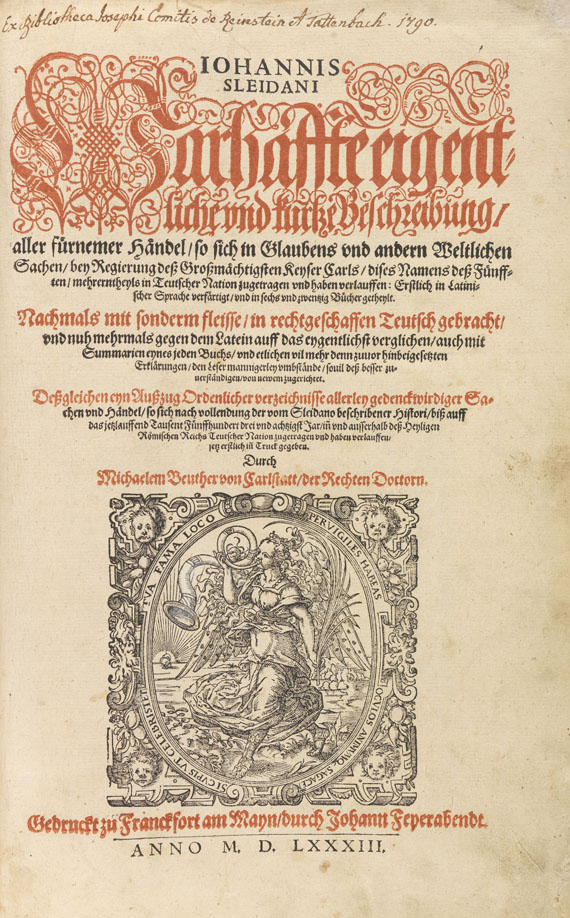 Ex Bibliotheca Josephi Comitis de Reinstein et Tattenbach. 1790.
IOHANNIS
SLEIDANI
Warhaffte eigent-
liche vnd kurtze Beschreibung /
aller fürnemer Händel / so sich in Glaubens vnd andern Weltlichen
Sachen / bey Regierung deß Großmächtigsten Keyser Carls / dises Namens deß Fünff-
ten / mehrerntheyls in Teutscher Nation zugetragen vnd haben verlauffen: Erstlich in Latini-
scher Sprache verfärtigt / vnd in sechs vnd zwentzig Bücher getheylt.
Nachmals mit sonderm fleisse / in rechtgeschaffen Teutsch gebracht /
vnd nuh mehrmals gegen dem Latein auff das eygentlichst verglichen / auch mit
Summarien eynes jeden Buchs / vnd etlichen vil mehr denn zuuor hinbeigesetzten
Erklärungen / den Leser mannigerley vmbstände / souil deß besser zu-
uerständigen / von newem zugerichtet.
Deßgleichen eyn Außzug Ordenlicher verzeichnisse allerley gedenckwirdiger Sa-
chen vnd Händel / so sich nach vollendung der vom Sleidano beschribener Histori / biß auff
das jetzlauffend Tausent Fünffhundert drei vnd achtzigst Jar / iñ vnd ausserhalb deß Heyligen
Römischen Reichs Teutscher Nation zugetragen vnd haben verlauffen /
jetz erstlich iñ Truck gegeben.
Durch
Michaelem Beuther von Carlstatt / der Rechten Doctorn.
SI CVPIS VT CELEBRI STET TVA FAMA LOCO
PERVIGILES HABEAS OCVLOS ANIMVMQ; SAGACẼ
Gedruckt zů Franckfort am Mayn / durch Johann Feyerabendt.
ANNO M. D. LXXXIII.